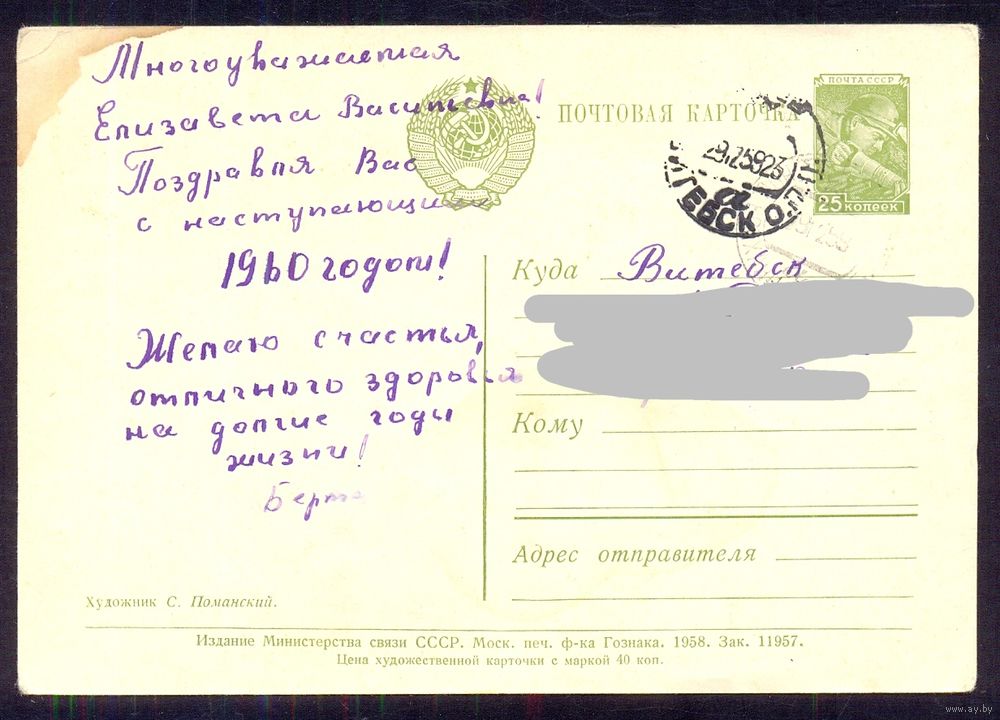 Многоуважаемая
Елизавета Васильевна!
Поздравля Вас
с наступающим
1960 годом!
Желаю счастья,
отличного здоровья
на долгие годы
жизни!
Берта
Художник С. Поманский.
ПОЧТОВАЯ КАРТОЧКА
ПОЧТА СССР
25 КОПЕЕК
ВИТЕБСК
Куда Витебск
Кому
Адрес отправителя
Издание Министерства связи СССР. Моск. печ. ф-ка Гознака. 1958. Зак. 11957.
Цена художественной карточки с маркой 40 коп.
www.ay.by